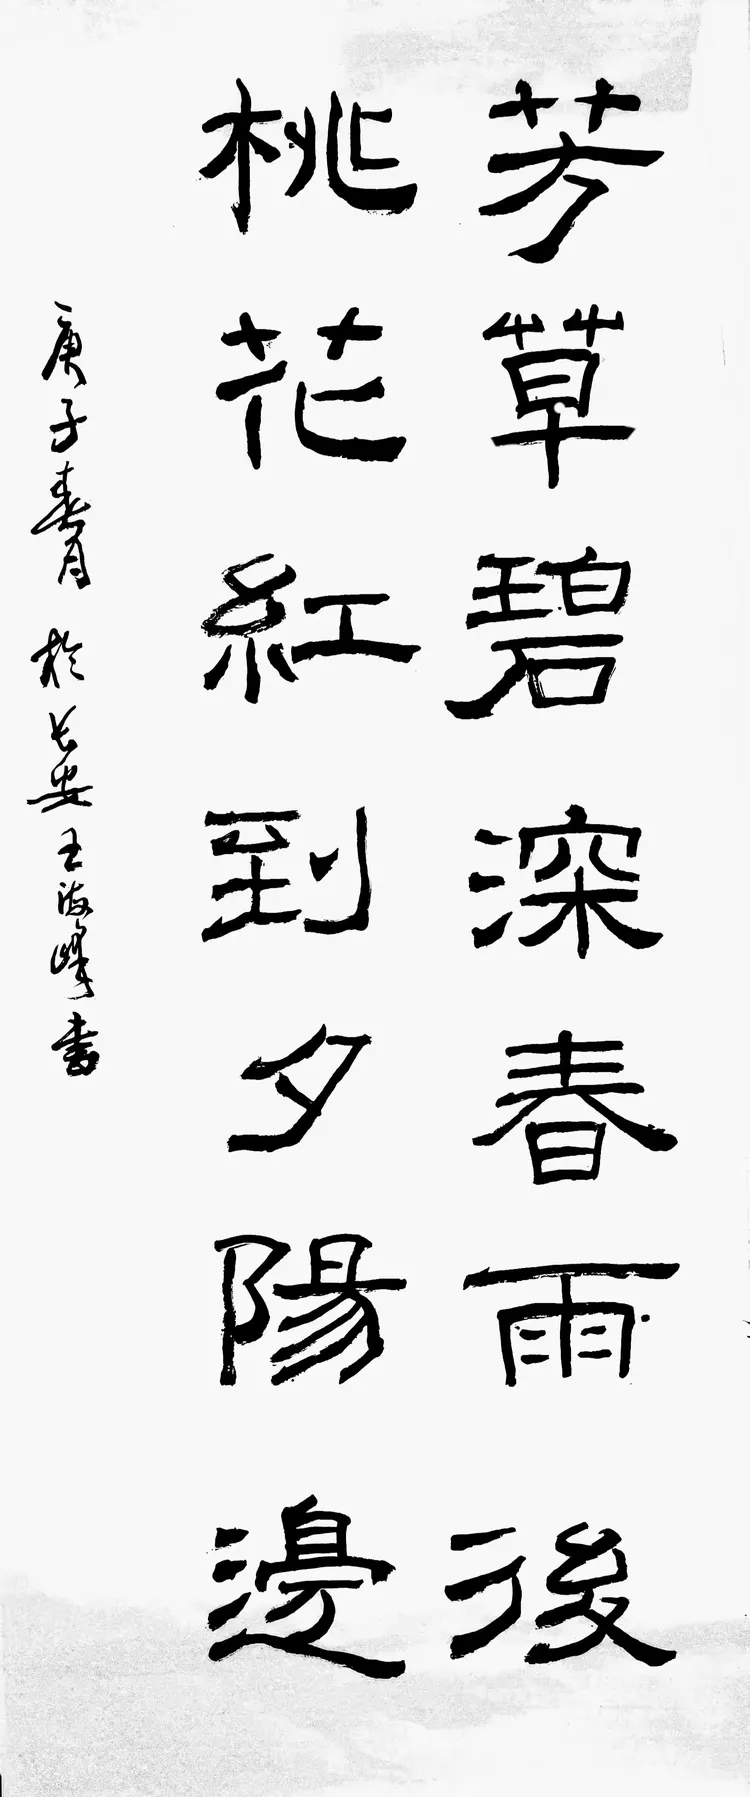 芳草碧深春雨後
桃花紅到夕陽邊
庚子春月於长安王海峰书